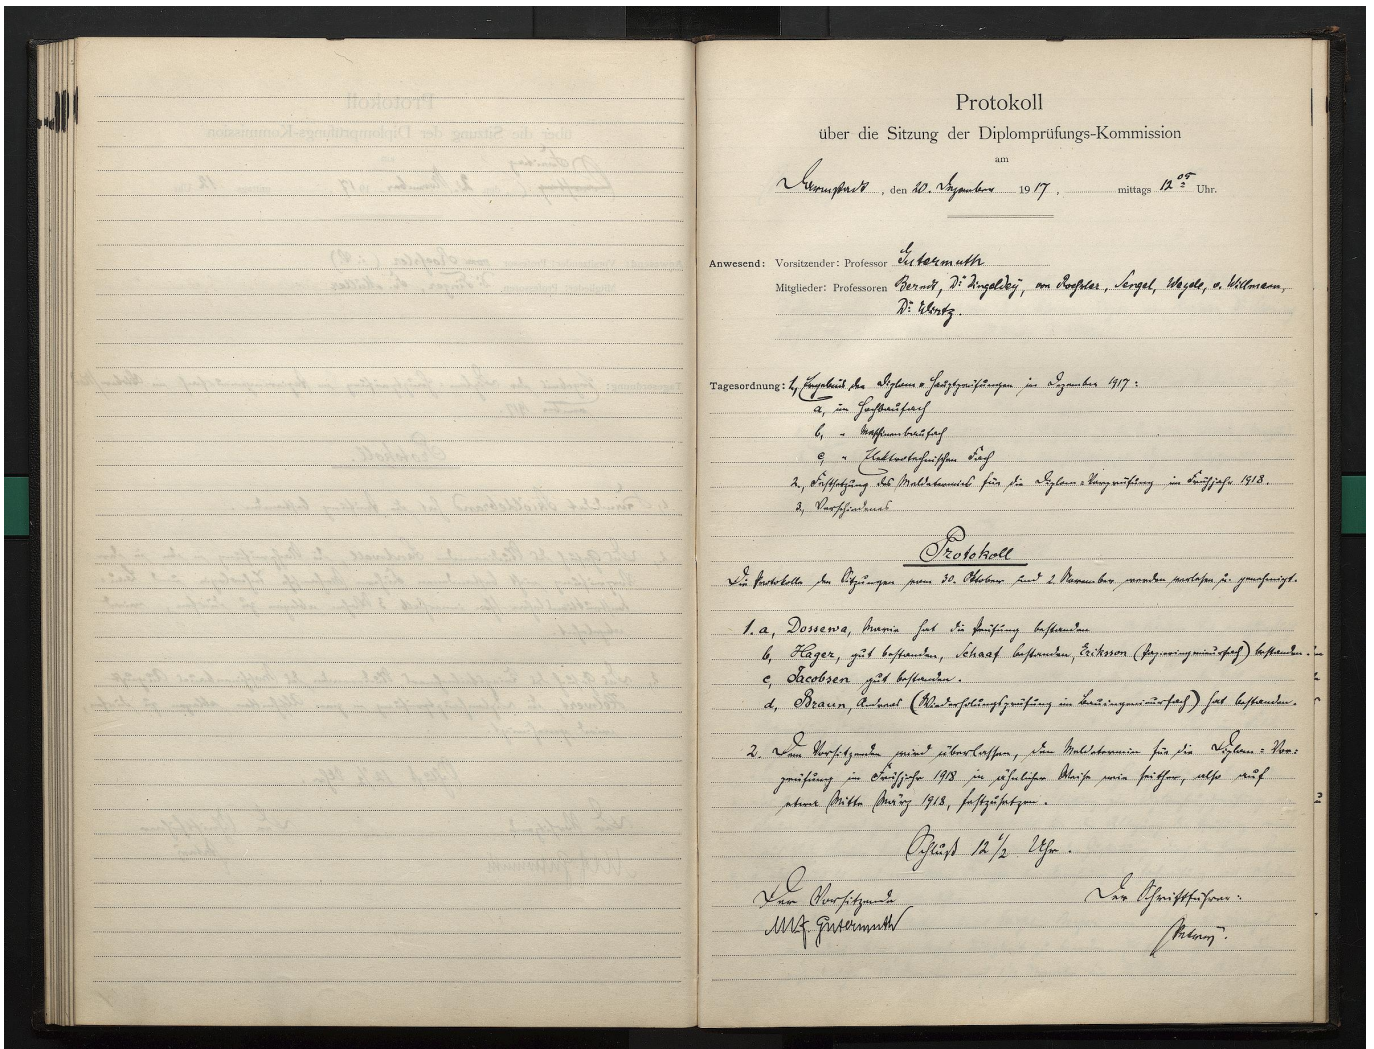 Protokoll
über die Sitzung der Diplomprüfungs-Kommission
am
Darmstadt, den 20. Dezember 1917, mittags 12 05 Uhr.
Anwesend: Vorsitzender: Professor Gutermuth
Mitglieder: Professoren Berndt, Dr. Dingeldey, von Roeßler, Sengel, Wagde, v. Willmann,
Dr. Wirtz.
Tagesordnung: 1, Ergebnis der Diplom-Hauptprüfungen im Dezember 1917:
a, im Hochbaufach
b, " Maschinenbaufach
c, " Elektrotechnischen Fach
2, Festsetzung des Meldetermins für die Diplom-Vorprüfung im Frühjahr 1918.
3, Verschiedenes
Protokoll
Die Protokolle der Sitzungen vom 30. Oktober und 2. November werden verlesen u. genehmigt.
1. a, Dossewa, Maria hat die Prüfung bestanden
b, Hager, gut bestanden, Schaaf bestanden, Eriksson (Papieringenieurfach) bestanden.
c, Jacobsen gut bestanden.
d, Braun, Andreas (Wiederholungsprüfung im Bauingenieurfach) hat bestanden.
2. Dem Vorsitzenden wird überlassen, den Meldetermin für die Diplom-Vor-
prüfung im Frühjahr 1918 in ähnlicher Weise wie seither, also auf
etwa Mitte März 1918, festzusetzen.
Schluß 12 1/2 Uhr.
Der Vorsitzende
Der Schriftführer:
Gutermuth